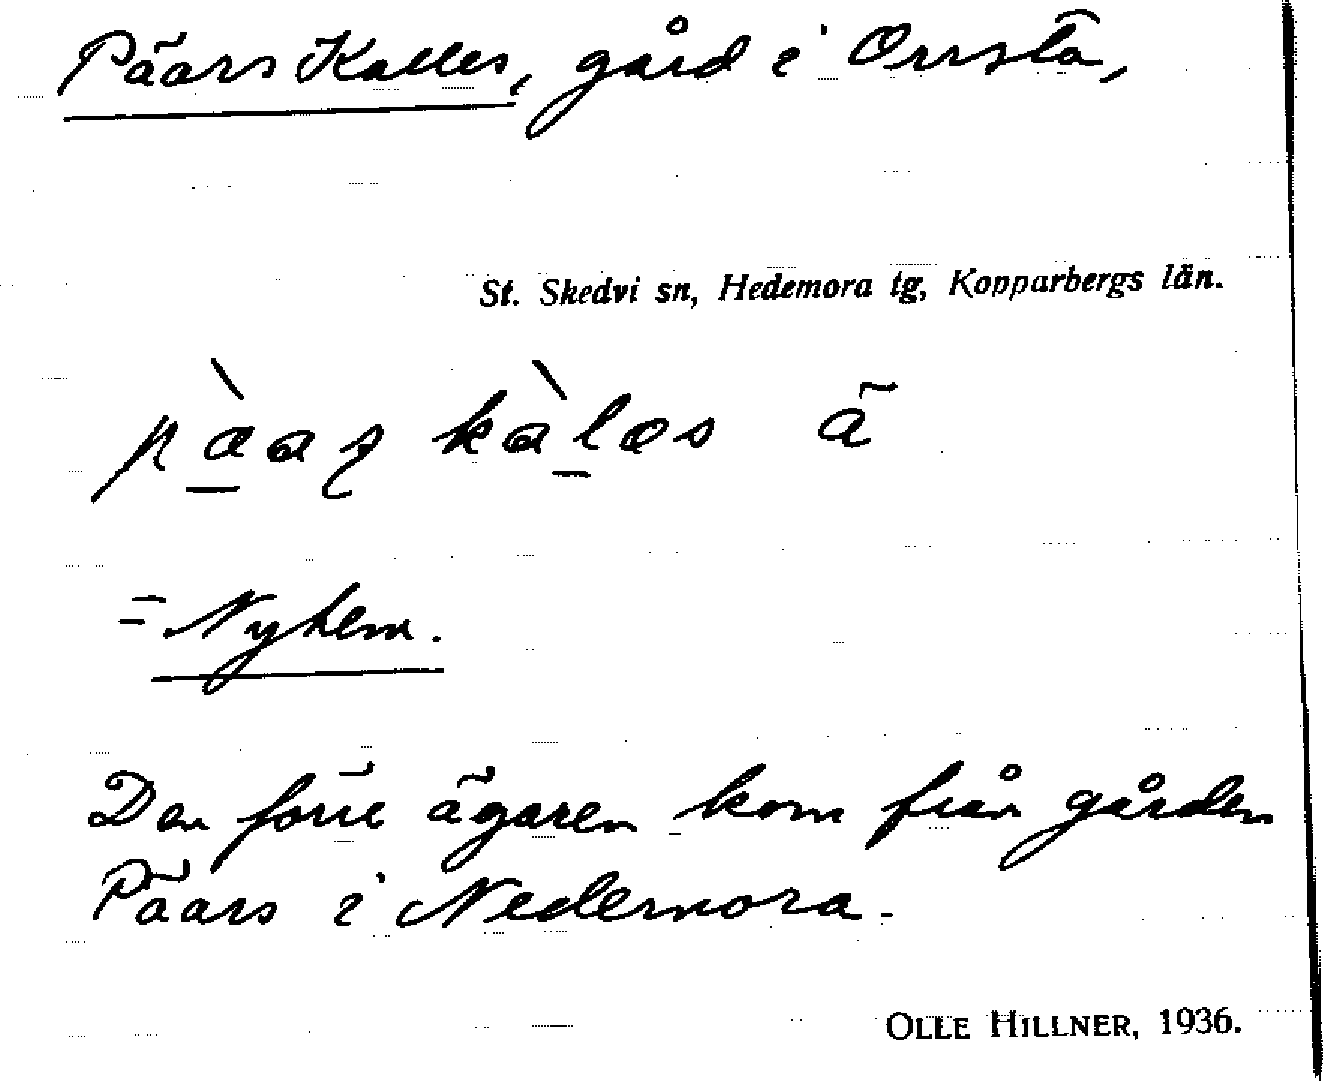 Päars Kalles, gård i Orrsta,
St. Skedvi sn, Hedemora tg, Kopparbergs län.
= Nyhem.
Den förre ägaren kom från gården
Päars i Nedernora.
OLLE HILLNER, 1936.